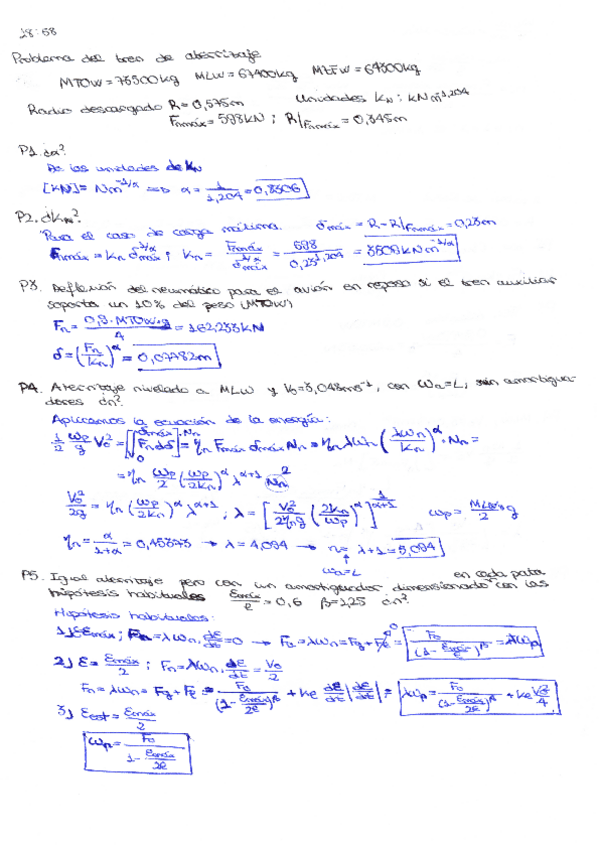 18:58
Problema del tren de aterrizaje
MTOW = 73500kg MLW = 67400kg MZFW = 64300kg
Radio descargado R = 0,575m Unidades kn: kN m^-1,204
Fnmáx = 598kN ; R|Fnmáx = 0,345m
P1. ¿α?
De las unidades de kn
[kN] = Nm^-1/α => α = 1/1,204 = 0,8306
P2. ¿kn?
Para el caso de carga máxima. δmáx = R - R|Fnmáx = 0,23m
Fnmáx = kn δmáx^1/α ; kn = Fnmáx/δmáx^1/α = 598/0,23^1,204 = 3509 kN m^-1/α
P3. Deflexión del neumático para el avión en reposo si el tren auxiliar
soporta un 10% del peso (MTOW)
Fn = 0,9·MTOW·g/4 = 162,233kN
δ = (Fn/kn)^α = 0,07782m
P4. Aterrizaje nivelado a MLW y V0 = 3,048ms^-1, con Wn = L, sin amortigua-
dores ¿n?
Aplicamos la ecuación de la energía:
1/2 Wp/g V0^2 = [∫0^δmáx Fn dδ]·Nn = ηn Fnmáx δmáx Nn = ηn λWn (λWn/kn)^α · Nn =
= ηn Wp/2 (Wp/2kn)^α λ^α+1 Nn
V0^2/2g = ηn (Wp/2kn)^α λ^α+1 ; λ = [V0^2/2ηng (2kn/Wp)^α]^1/α+1 Wp = MLW/2 g
ηn = α/1+α = 0,45373 → λ = 4,094 → n = λ+1 = 5,094
P5. Igual aterrizaje pero con un amortiguador dimensionado con las en cada pata
hipótesis habituales εmáx/e = 0,6 β = 1,25 ¿n?
Hipótesis habituales:
1) εmáx ; Fn = λWn, dε/dt = 0 → Fa = λWn = Fg + Fe = F0/(1 - εmáx/e)^β = λWp
2) ε = εmáx/2 ; Fn = λWn, dε/dt = V0/2
Fn = λWn = Fg + Fe = F0/(1 - εmáx/2e)^β + ke dε/dt |dε/dt| = λWp = F0/(1 - εmáx/2e)^β + ke V0^2/4
3) εest = εmáx/2
Wp = F0/1 - εmáx/2e